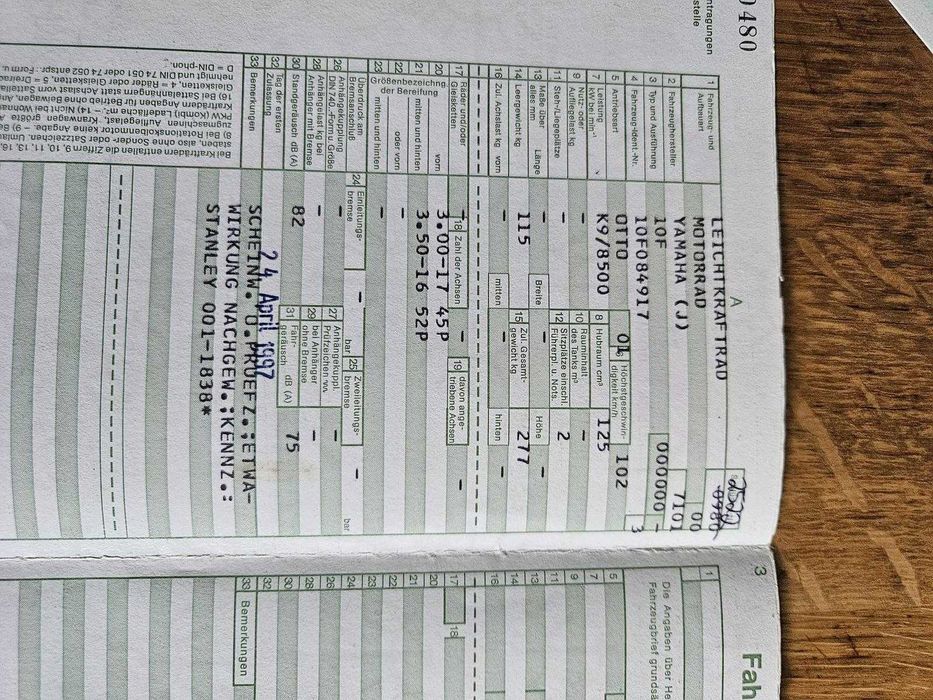 0480
ntragungen
stelle
A
1 Fahrzeug- und Aufbauart LEICHTKRAFTRAD
MOTORRAD 00
2 Fahrzeughersteller YAMAHA (J) 7101
3 Typ und Ausführung 10F 000000 -
4 Fahrzeug-Ident.-Nr. 10F084917 3
5 Antriebsart OTTO 01 6 Höchstgeschwindigkeit km/h 102
7 Leistung kW bei min K9/8500 8 Hubraum cm³ 125
9 Nutz- oder Aufliegelast kg - 10 Rauminhalt des Tanks m³ -
11 Steh-/Liegeplätze - 12 Sitzplätze einschl. Führerpl. u. Nots. 2
13 Maße über alles mm Länge - Breite - Höhe -
14 Leergewicht kg 115 15 Zul. Gesamtgewicht kg 277
16 Zul. Achslast kg vorn - mitten - hinten -
17 Räder und/oder Gleisketten - 18 Zahl der Achsen - 19 davon angetriebene Achsen -
Größenbezeichng. der Bereifung
20 vorn 3.00-17 45P
21 mitten und hinten 3.50-16 52P
22 oder vorn -
23 mitten und hinten -
Überdruck am Bremsanschluß 24 Einleitungsbremse - bar 25 Zweileitungsbremse - bar
26 Anhängekupplung DIN 740.-Form u. Größe - 27 Anhängekuppl. Prüfzeichen -
28 Anhängelast kg bei Anhänger mit Bremse - 29 bei Anhänger ohne Bremse -
30 Standgeräusch dB (A) 82 31 Fahrgeräusch dB (A) 75
32 Tag der ersten Zulassung 24. April 1997
33 Bemerkungen SCHEINW.U.PRUEFZ.;ETWA-
WIRKUNG NACHGEW.;KENNZ.:
STANLEY 001-1838*
D = DIN-phon.
3 Fah
Die Angaben über He
Fahrzeugbrief grundsä
1
5
7
9
11
13
14
16
17 18
20
21
22
23
24
26
28
30
32
33 Bemerkungen